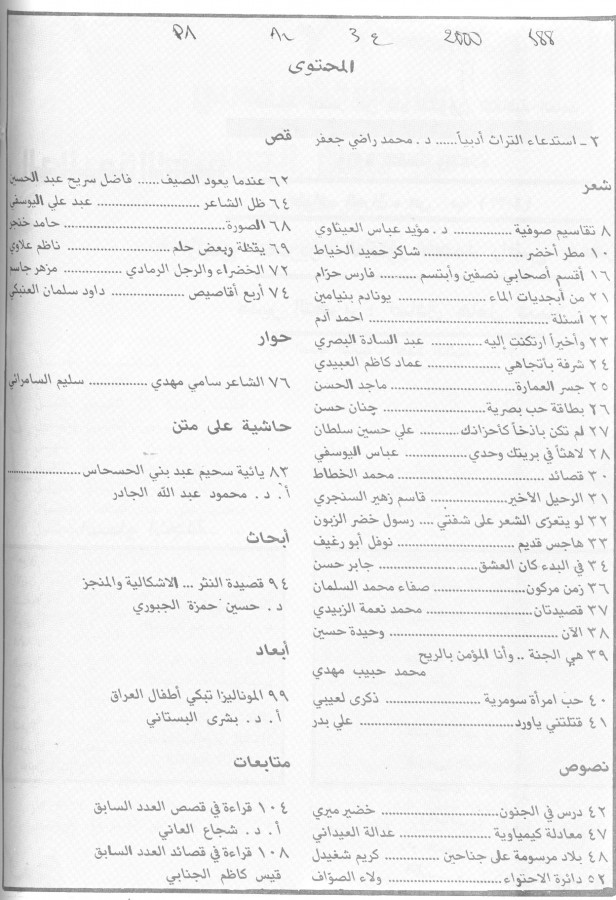 P8 A2 3 ع 2000 588
المحتوى
٣ - استدعاء التراث أدبياً ...... د . محمد راضي جعفر
شعر
٨ تقاسيم صوفية ............... د . مؤيد عباس العيثاوي
١٠ مطر أخضر ........................ شاكر حميد الخياط
١٦ أقسم أصحابي نصفين وأبتسم ......... فارس حزام
٢١ من أبجديات الماء ................... يونادم بنيامين
٢٢ أسئلة ........................................ احمد آدم
٢٣ وأخيراً ارتكنت إليه ............. عبد السادة البصري
٢٤ شرفة بأتجاهي ................. عماد كاظم العبيدي
٢٥ جسر العمارة ............................ ماجد الحسن
٢٦ بطاقة حب بصرية ....................... چنان حسن
٢٧ لم تكن باذخاً كأحزانك .......... علي حسين سلطان
٢٨ لاهثاً في بريتك وحدي .............. عباس اليوسفي
٣٠ قصائد ............................... محمد الخطاط
٣١ الرحيل الأخير ................... قاسم زهير السنجري
٣٢ لو يتعرّى الشعر على شفتي .... رسول خضر الزبون
٣٣ هاجس قديم ........................ نوفل أبو رغيف
٣٤ في البدء كان العشق .................. جابر حسن
٣٦ زمن مركون ..................... صفاء محمد السلمان
٣٧ قصيدتان ......................... محمد نعمة الزبيدي
٣٨ الآن .................................... وحيدة حسين
٣٩ هي الجنة .. وأنا المؤمن بالريح
محمد حبيب مهدي
٤٠ حب امرأة سومرية ..................... ذكرى لعيبي
٤١ قتلتني ياورد ............................. علي بدر
نصوص
٤٢ درس في الجنون ......................... خضير ميري
٤٧ معادلة كيمياوية ..................... عدالة العيداني
٤٨ بلاد مرسومة على جناحين ............. كريم شغيدل
٥٢ دائرة الاحتواء ........................ ولاء الصوّاف
قص
٦٢ عندما يعود الصيف ...... فاضل سريح عبد الحسين
٦٤ ظل الشاعر ..................... عبد علي اليوسفي
٦٨ الصورة ................................. حامد خنجر
٦٩ يقظة وبعض حلم ..................... ناظم علاوي
٧٢ الخضراء والرجل الرمادي ............ مزهر جاسم
٧٤ أربع أقاصيص ................. داود سلمان العنبكي
حوار
٧٦ الشاعر سامي مهدي .............. سليم السامرائي
حاشية على متن
٨٣ يائية سحيم عبد بني الحسحاس ....................
أ . د . محمود عبد الله الجادر
أبحاث
٩٤ قصيدة النثر ... الاشكالية والمنجز
د . حسين حمزة الجبوري
أبعاد
٩٩ الموناليزا تبكي أطفال العراق
أ . د . بشرى البستاني
متابعات
١٠٤ قراءة في قصص العدد السابق
أ . د . شجاع العاني
١٠٨ قراءة في قصائد العدد السابق
قيس كاظم الجنابي